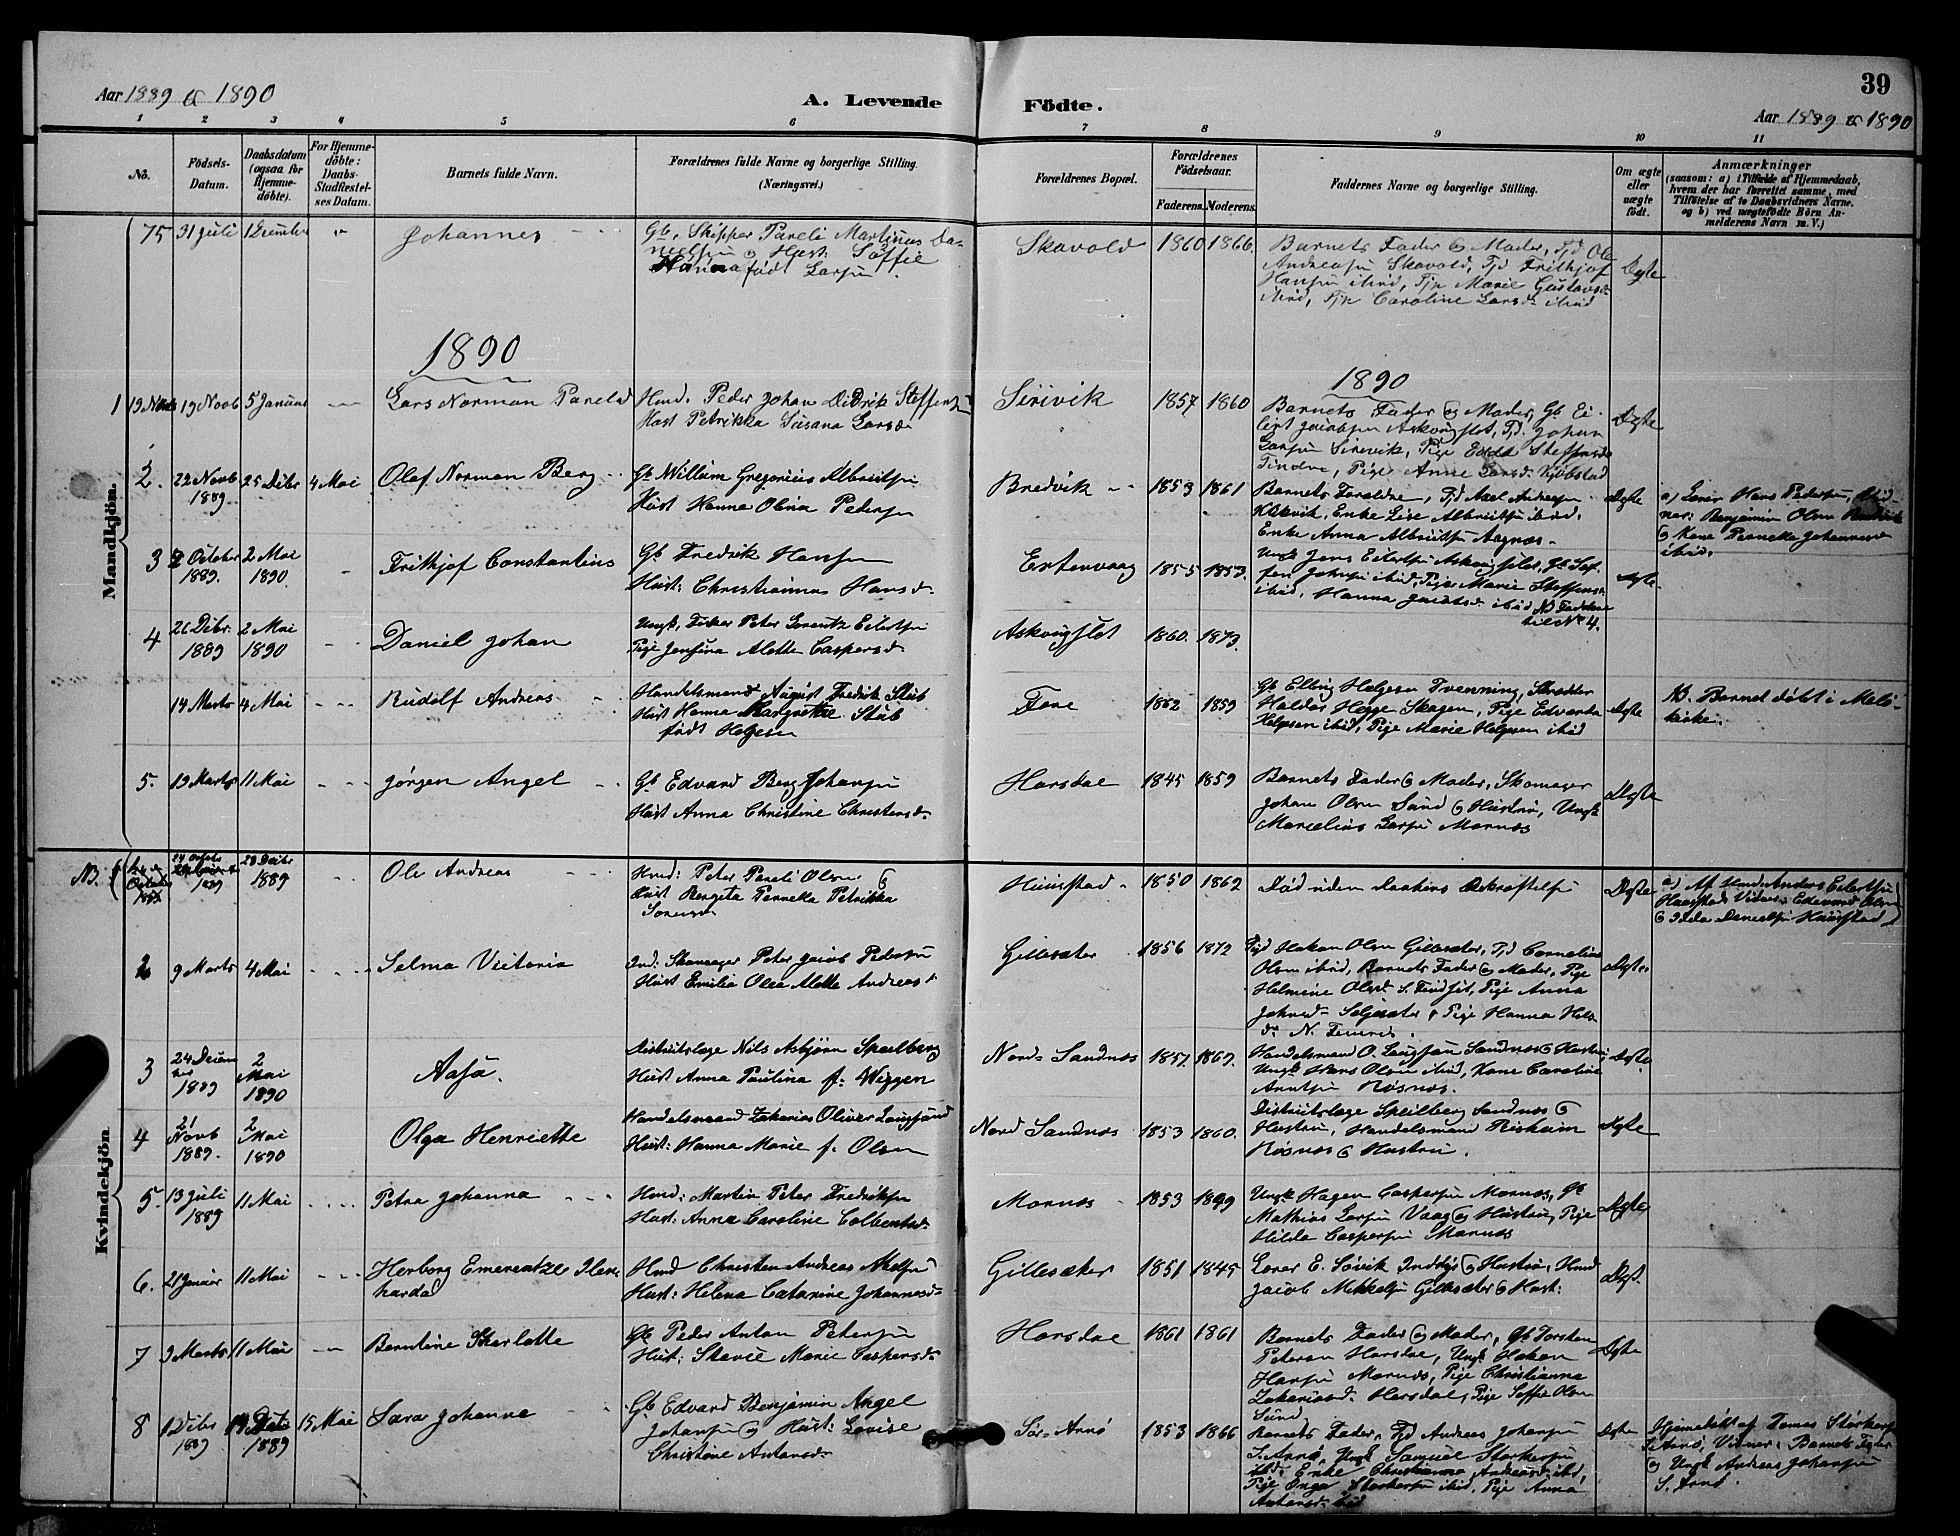 39
Aar 1889 & 1890
A. Levende Födte.
Aar 1889 & 1890
1 2 3 4 5 6 7 8 9 10 11
No.
Födsels-Datum.
Daabsdatum (ogsaa for Hjemmedöbte).
For Hjemmedöbte: Daabs-Stadfæstelses Datum.
Barnets fulde Navn.
Forældrenes fulde Navne og borgerlige Stilling. (Næringsvei.)
Forældrenes Bopæl.
Forældrenes Födselsaar.
Faderens. Moderens.
Faddernes Navne og borgerlige Stilling.
Om ægte eller uægte födt.
Anmærkninger
(saasom: a) i Tilfælde af Hjemmedaab,
hvem der har forrettet samme, med
Tilföielse af to Daabsvidners Navne,
og b) ved uægtefödte Börn Anmelderens Navn m. V.)
Mandkjön.
75 31 Juli
Johannes
Gb. Skipper Pareli Martinus Danielsen & Hust. Soffie
Hanna født Larsen.
Skavold 1860 1866
Barnets Fader & Moder, Tjd Ole
Andreasen Skavold, Tjd Frithjof
Hansen ibid, Tjp Marie Gustavsd
ibid, Tjp Caroline Larsd. ibid
Ægte
1890
1890
1 19 Novb 5 Januar
Lars Norman Pareli
Hmd. Peder Johan Didrik Steffensen
Hust Petrikka Susana Larsd.
Sirivik 1857 1860
Barnets Fader & Moder, Gb Ei-
lert Jacobsen Askvigslet, Tjd. Johan
Larsen Sirevik, Pige Steffensd
Tindvi, Pige Anne Larsd.
Ægte
2. 22 Novb 1889 25 Debr 4 Mai
Olaf Norman Berg
Gb William Gregorius Albriktsen
Hust Hanna Olina Pedersen
Bredvik 1859 1861
Barnets Forældre, Tjd Axel Andreasen
Enke Lise Albriktsen ibid.
Enke Anna Albriktsen
Ægte
a) Lærer Hans Pedersen, Vidner: Benjamin Olsen
& Kone Pernella Johannesd
ibid.
3 October 1889. 2 Mai 1890.
Frithjof Constantius
Gb Fredrik Hansen
Hust: Christianna Hansd.
Estervaag 1855 1853.
Ungk Jens Eilertsen Askvigslet, Gb
ibid, Pige Marie Steffensd
ibid, Hanna ibid NB Faddere
til No 4.
Ægte.
4 26 Debr. 1889 2 Mai 1890
Daniel Johan
Ungk, Fisker Peter Lorentz Eilertsen
Pige Jensina Alette Caspersd.
Askvigslet 1860. 1873.
14 Marts 4 Mai
Rudolf Andreas
Handelsmand August Fredrik Stub
Hust Hanna Margrethe Stub
født Helgesen
Fore 1862 1859
Gb Elling Helgesen Tvenning, Skrædder
Haldor Hegge Skagen, Pige Edvarda
Helgesen ibid, Pige Marie Helgesen ibid
Ægte
NB. Barnet døbt i Melö-
kirke.
5. 19 Marts 11 Mai
Jørgen Angel
Gb Edvard Berg Johansen
Hust Anna Christine Christensd.
Horsdal 1845 1859
Barnets Fader & Moder, Skomager
Johan Olsen Sund & Hustru, Ungk
Marcelius Larsen Mornæs
Ægte
Kvindekjön
NB. 1889 29 Debr 1889
Ole Andreas
Hmd: Peter Pareli Olsen &
Hust Bergita Pernella Petrikka
Sørensd.
Huustad 1850 1862
Død uden Daabens Bekræftelse
Ægte
a) Af Hmd. Anders Eilertsen
Vidner: Edvard Olsen
& Danielsen Huustad
2 9 Marts 4 Mai
Selma Victoria
Ind: Skomager Peter Jacob Pedersen
Hust Emilia Olea Alette Andreasd.
Gillesæter 1856 1872
Tjd Hakon Olsen Gillesæter, Tjd Cornelius
Olsen ibid, Barnets Fader & Moder, Pige
Helmine Olsd. S. Findset, Pige Anna
Johnsd. Selsæter & Pige Hanna
Ægte.
3 24 Decem ber 1889 2 Mai 1890
Aasa.
Districtslæge Nils Asbjørn Speilberg
Hust Anna Paulina f. Wiggen
Nord-Sandnæs 1857 1869
Handelsmand O. Langsund Sandnæs & Hustru
Ungk Hans Olsen ibid, Kone Caroline
Arntsen Røsnæs.
Ægte.
4 21 Novb 1889. 2 Mai 1890
Olga Henriette
Handelsmand Zakarias Oliver Langsund
Hust: Hanna Marie f. Olsen
Nord Sandnæs 1853 1860.
Districtslæge Speilberg Sandnæs &
Hustru, Handelsmand
Røsnæs & Hustru.
Ægte
5. 13 Juli 1889 11 Mai
Petra Johanna
Hmd: Martin Peter Fredriksen
Hust: Anna Caroline Colbentsd.
Mornæs 1853 1849
Ungk Hagen Caspersen Mornæs, Gb
Mathias Larsen Vaag & Hustru, Pige
Hilda Caspersen Mornæs
Ægte
6. 21 Januar 11 Mai
Herborg Emerentze
harda
Hmd Christen Andreas Axelsen
Hust: Helena Catarine Johannesd.
Gillesæter 1851 1845
Lærer E. Søvik Inddyr & Hustru, Hmd
Jacob Mikkelsen Gillesæter & Hust:
Ægte.
7 9 Marts 11 Mai
Berntine Skarlotte
Gb Peder Anton Petersen
Hust: Marie Caspersd.
Horsdal 1861 1861
Barnets Fader & Moder, Gb Torsten
Petersen Horsdal, Ungk Hakon
Hansen Mornæs, Pige Christianna
Zakariasd. Horsdal, Pige Soffie Olsen
Sund
Ægte
8 1 Debr 1889 Debr 1889 15 Mai
Sara Johanna
Gb Edvard Benjamin Angel
Johansen & Hust: Lovise
Christine Antonsd.
Sör-Arnö 1853 1866
Barnets Fader, Tjd Andreas Johansen
S. Arnö, Ungk Samuel Storkersen
ibd. Enke Christianna Andreasd. ibid,
Pige Storkersen ibid, Pige Anna
Antonsd. ibid
Ægte
Hjemmedøbt af Tomas Storkersen
S. Arnö, Vidner: Barnets Fader
& Ungk Andreas Johansen
S. Arnö